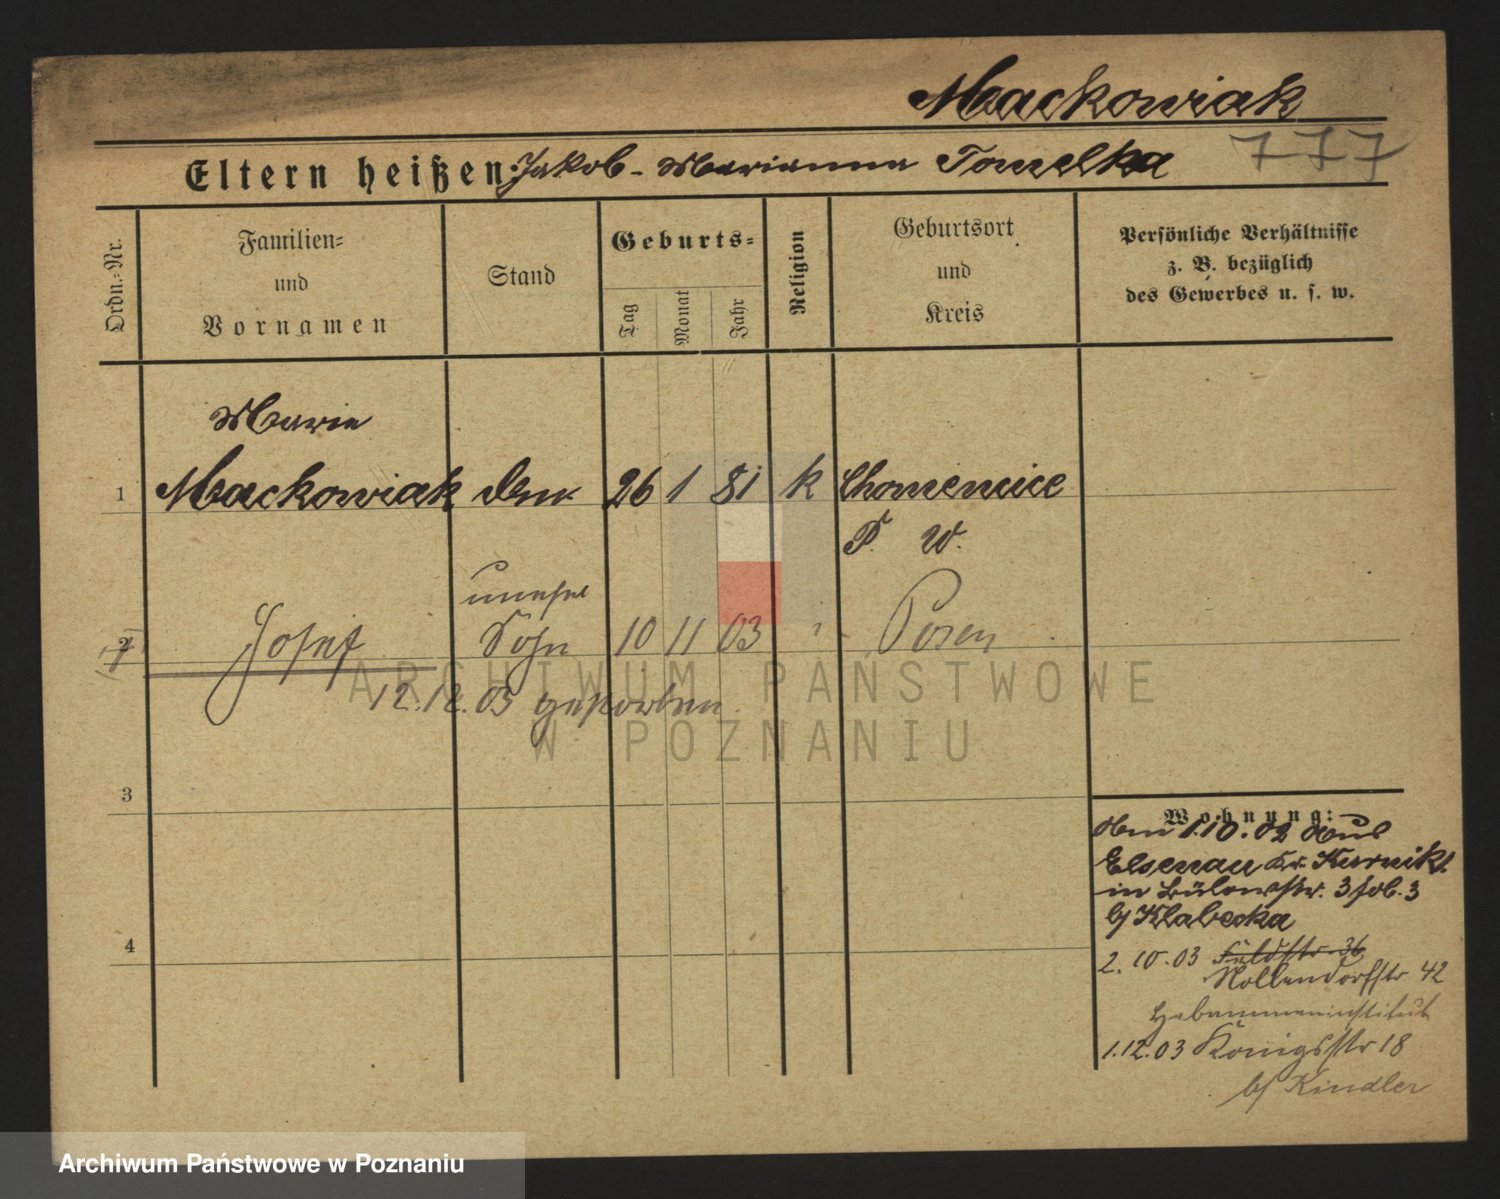 Mackowiak
777
Eltern heißen: Jakob - Marianna Tomelka
Ordn.-Nr.
Familien-
und
Vornamen
Stand
Geburts-
Tag
Monat
Jahr
Religion
Geburtsort
und
Kreis
Persönliche Verhältnisse
z. B. bezüglich
des Gewerbes u. s. w.
Marie
1 Mackowiak 26 1 81 k Chomencice
P. W.
unehel
2 Josef Sohn 10 11 03 " Posen
12.12.03 gestorben
3
4
Wohnung:
1.10.02 aus
Elsenau Kr. Kurnik
in Bülowstr. 3
b/ Klabecka
2.10.03 Feldstr. 36
Nollendorfstr 42
Hebammeninstitut
1.12.03 Königsstr 18
b/ Kindler
ARCHIWUM PAŃSTWOWE
W POZNANIU
Archiwum Państwowe w Poznaniu